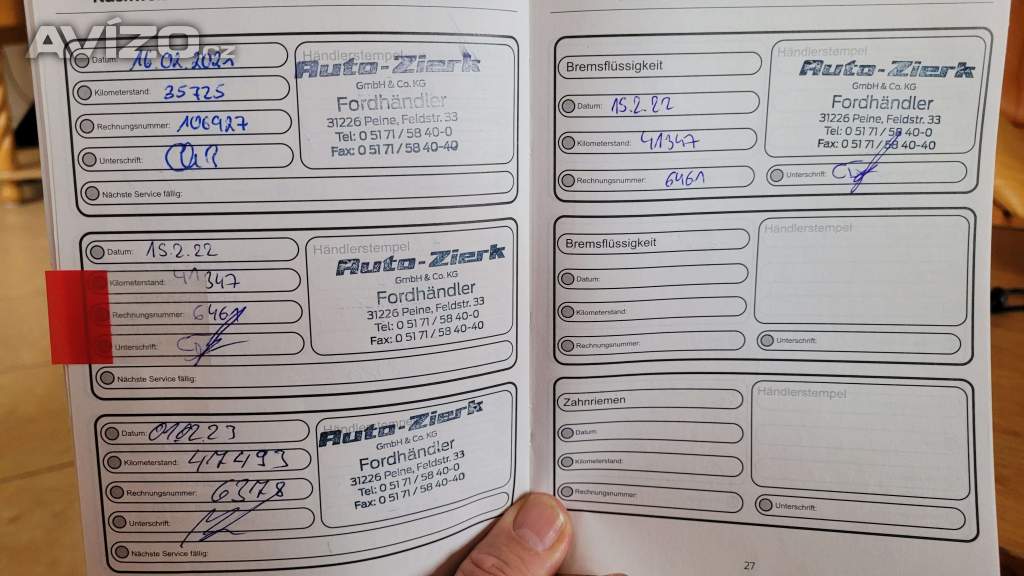 AVÍZO.cz
Datum: 16.02.2021
Kilometerstand: 35725
Rechnungsnummer: 106927
Unterschrift:
Nächste Service fällig:
Händlerstempel
Auto-Zierk
GmbH & Co. KG
Fordhändler
31226 Peine, Feldstr. 33
Tel: 0 51 71 / 58 40-0
Fax: 0 51 71 / 58 40-40
Datum: 15.2.22
Kilometerstand: 41347
Rechnungsnummer: 6461
Unterschrift:
Nächste Service fällig:
Händlerstempel
Auto-Zierk
GmbH & Co. KG
Fordhändler
31226 Peine, Feldstr. 33
Tel: 0 51 71 / 58 40-0
Fax: 0 51 71 / 58 40-40
Datum: 01.02.23
Kilometerstand: 47493
Rechnungsnummer: 6378
Unterschrift:
Nächste Service fällig:
Auto-Zierk
GmbH & Co. KG
Fordhändler
31226 Peine, Feldstr. 33
Tel: 0 51 71 / 58 40-0
Fax: 0 51 71 / 58 40-40
Bremsflüssigkeit
Datum: 15.2.22
Kilometerstand: 41347
Rechnungsnummer: 6461
Händlerstempel
Auto-Zierk
GmbH & Co. KG
Fordhändler
31226 Peine, Feldstr. 33
Tel: 0 51 71 / 58 40-0
Fax: 0 51 71 / 58 40-40
Unterschrift:
Bremsflüssigkeit
Datum:
Kilometerstand:
Rechnungsnummer:
Händlerstempel
Unterschrift:
Zahnriemen
Datum:
Kilometerstand:
Rechnungsnummer:
Händlerstempel
Unterschrift:
27